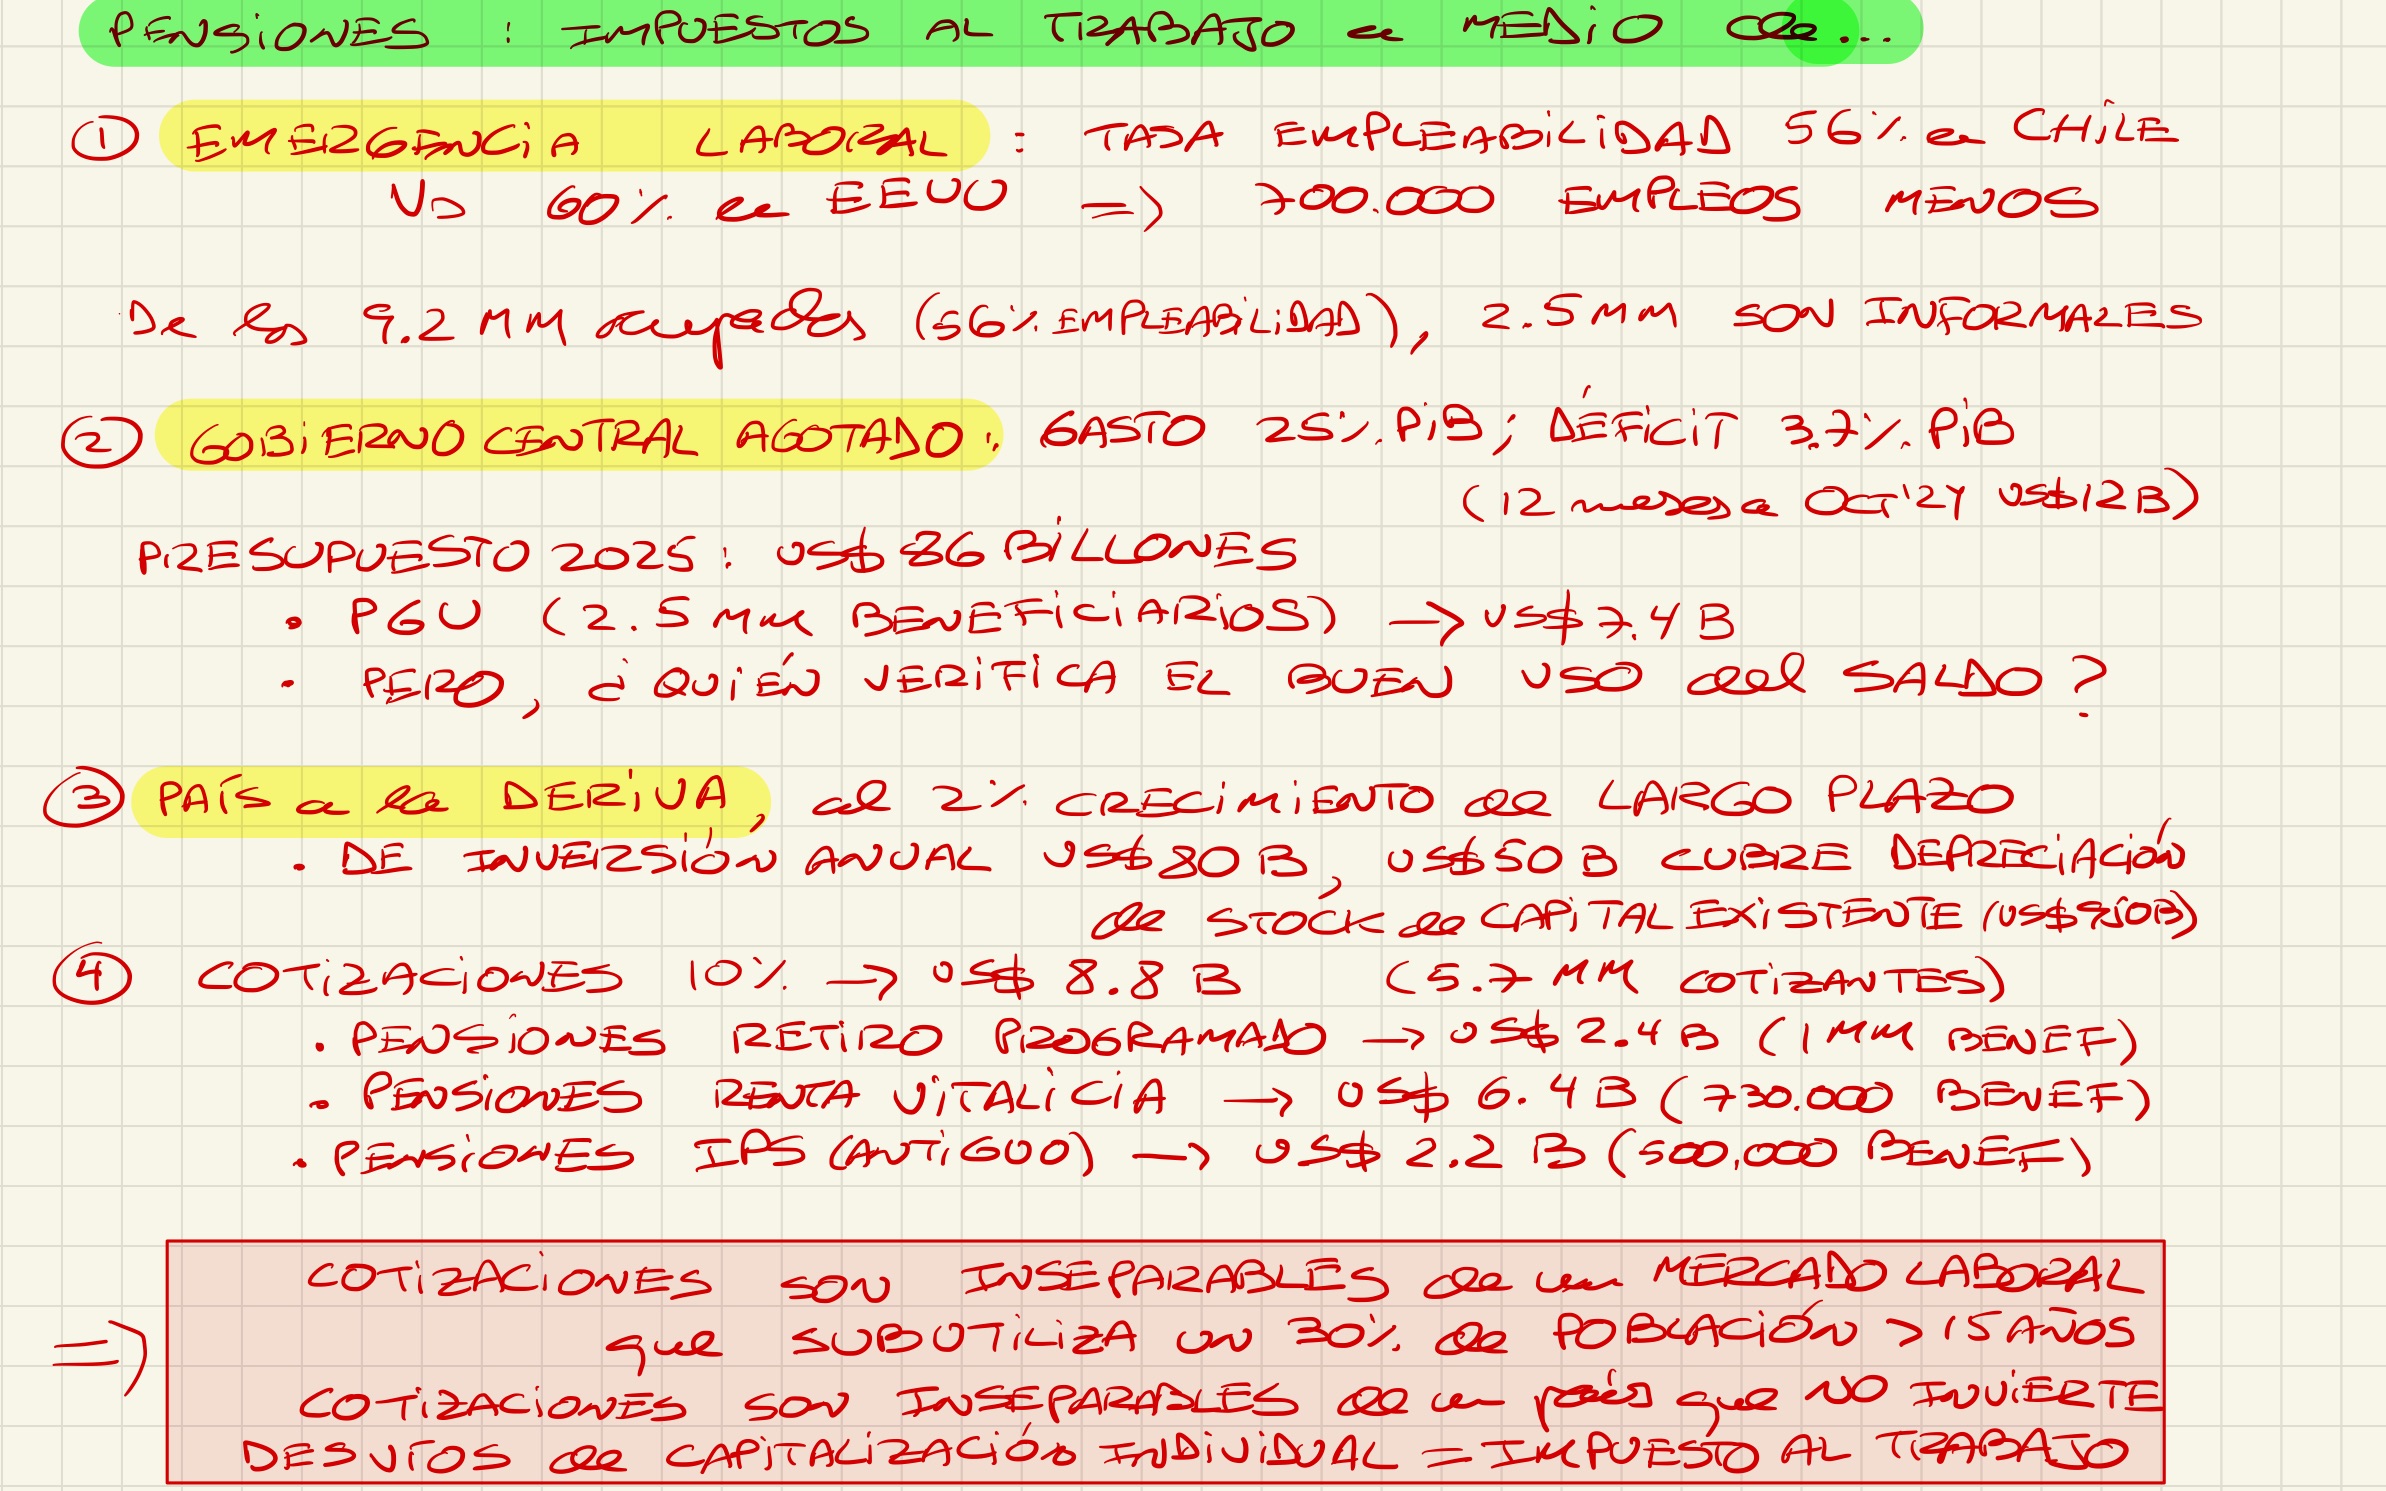 PENSIONES : IMPUESTOS AL TRABAJO en MEDIO de...
① EMERGENCIA LABORAL : TASA EMPLEABILIDAD 56% en CHILE
VS 60% en EEUU => 700.000 EMPLEOS MENOS
De los 9.2 MM ocupados (56% EMPLEABILIDAD), 2.5 MM SON INFORMALES
② GOBIERNO CENTRAL AGOTADO: GASTO 25% PIB; DÉFICIT 3.7% PIB
(12 meses a OCT'24 US$12B)
PRESUPUESTO 2025: US$ 86 BILLONES
• PGU (2.5 MM BENEFICIARIOS) → US$ 7.4 B
• PERO, ¿QUIÉN VERIFICA EL BUEN USO del SALDO?
③ PAÍS a la DERIVA, al 2% CRECIMIENTO de LARGO PLAZO
• DE INVERSIÓN ANUAL US$80 B, US$50 B CUBRE DEPRECIACIÓN
de STOCK de CAPITAL EXISTENTE (US$950B)
④ COTIZACIONES 10% → US$ 8.8 B (5.7 MM COTIZANTES)
• PENSIONES RETIRO PROGRAMADO → US$ 2.4 B (1 MM BENEF)
• PENSIONES RENTA VITALICIA → US$ 6.4 B (730.000 BENEF)
• PENSIONES IPS (ANTIGUO) → US$ 2.2 B (500.000 BENEF)
COTIZACIONES SON INSEPARABLES de un MERCADO LABORAL
=> que SUBUTILIZA UN 30% de POBLACIÓN > 15 AÑOS
COTIZACIONES SON INSEPARABLES de un país que NO INVIERTE
DESVÍOS de CAPITALIZACIÓN INDIVIDUAL = IMPUESTO AL TRABAJO